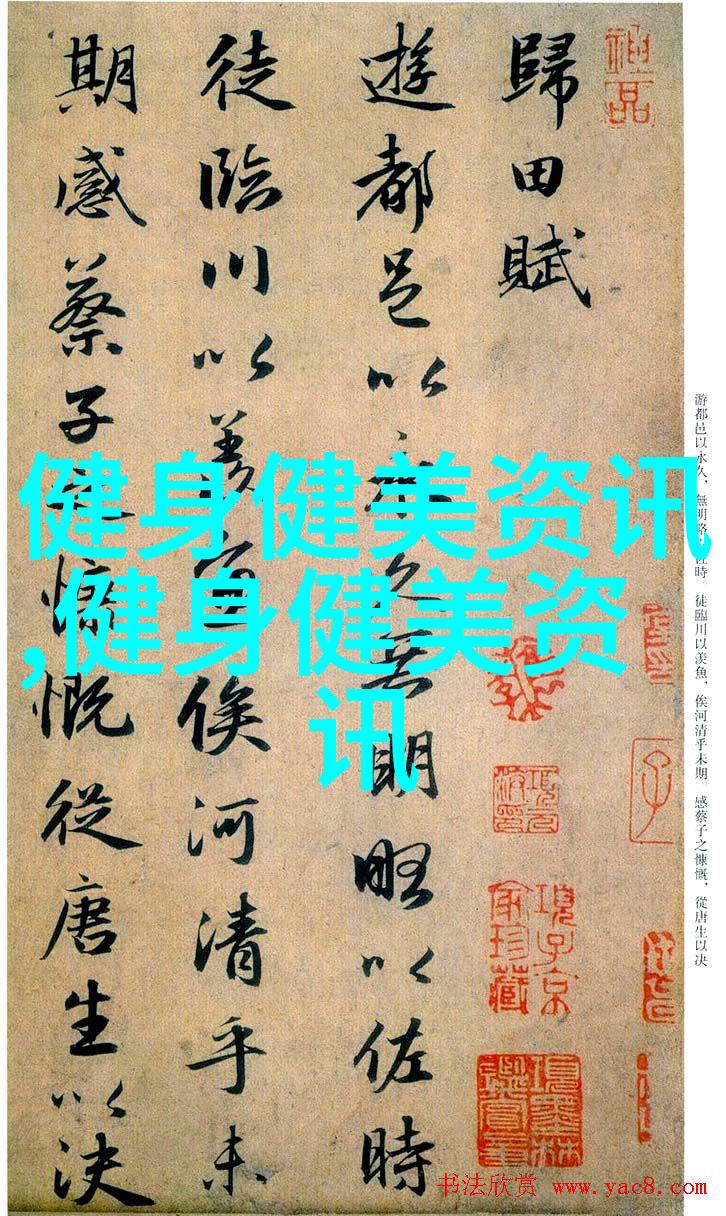 神品
歸田賦
遊都邑以永久無明略以佐時
徒臨川以羡魚俟河清乎未
期感蔡子之慷慨從唐生以決
健身健美资讯
,健身健美资
讯
游都邑以永久，無明略以佐時。徒臨川以羨魚，俟河清乎未期。感蔡子之慷慨，從唐生以决
子
項子京
家珍藏
項墨林
鑑賞章
书法欣赏 www.yac8.com